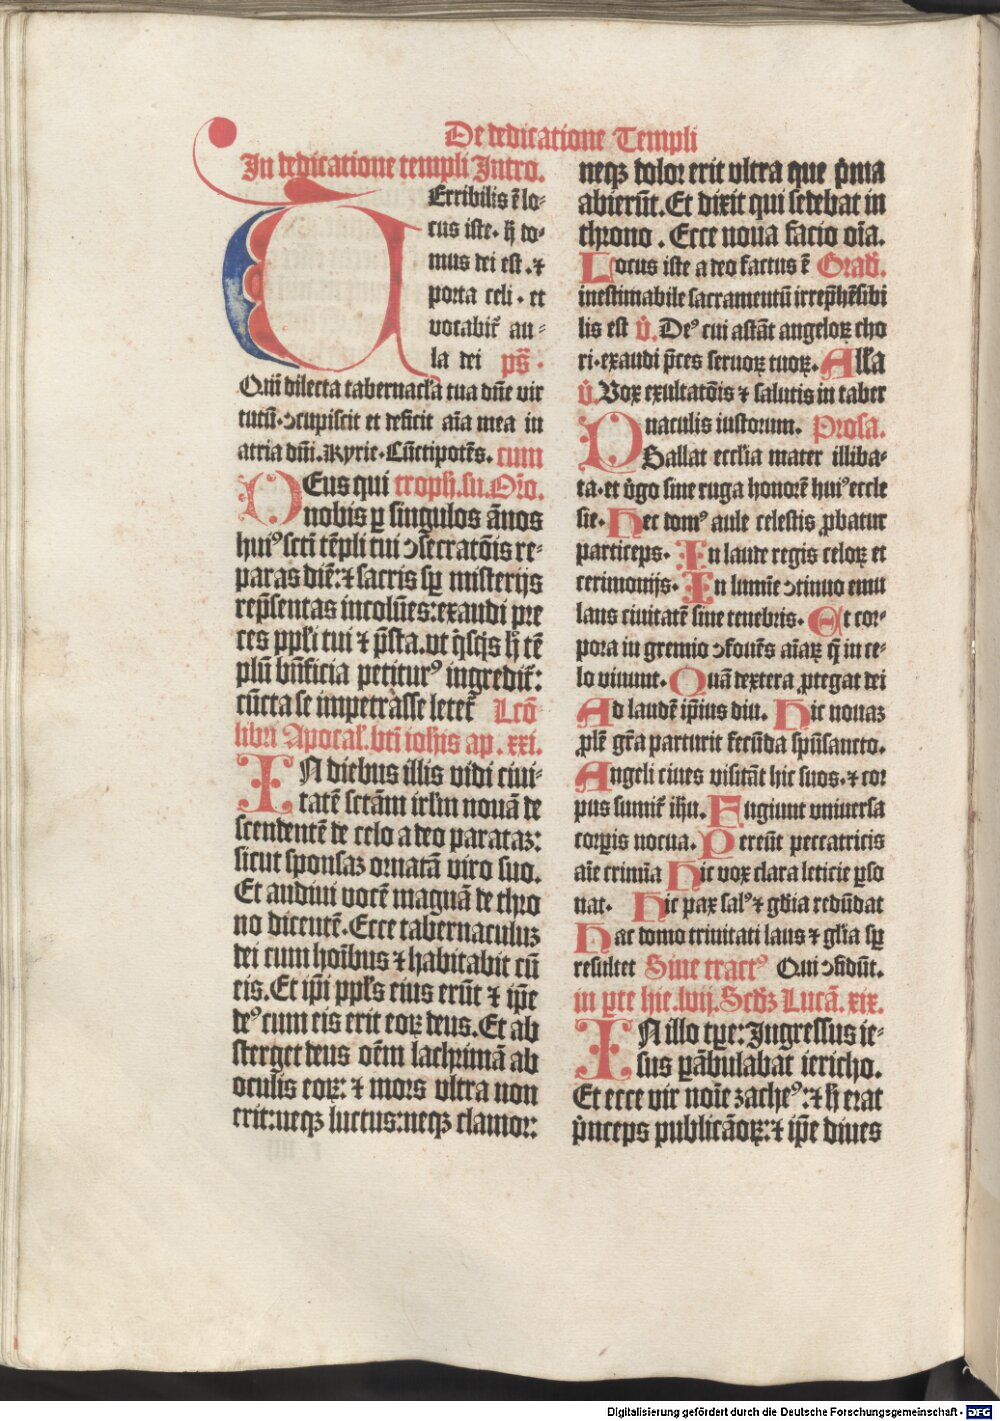 De dedicatione Templi
In dedicatione templi Intro.
TErribilis ē lo-
cus iste. h̄ do-
mus dei est .⁊
porta celi . et
vocabit᷑ au-
la dei ps̄ .
Q̄uī dilecta tabernacl̓a tua dn̄e vir
tutū. ꝯcupiscit et deficit aīa mea in
atria dn̄i. Kyrie. Cūctipotēs. cum
DEus qui troph.su. Or̄o.
nobis ꝑ singulos ānos
hui⁹ scti tēpli tui ꝯsecratōis re-
paras diē: ⁊ sacris sꝑ misterijs
rep̄sentas incolūes: exaudi pre
ces pplī tui ⁊ p̄sta. vt q̄sq̄s h̄ tē
plū bn̄ficia petitur⁹ ingredit᷑:
cūcta se impetrasse letet᷑ Lcō
libri Apocal̓. bt̄i ioh̄is ap. xxi.
IN diebus illis vidi ciui-
tatē sctām irl̓m nouā de
scendentē de celo a deo parataꝫ:
sicut sponsaꝫ ornatā viro suo.
Et audiui vocē magnā de thro
no dicentē. Ecce tabernaculuꝫ
dei cum hoībus ⁊ habitabit cū
eis. Et ip̄i ppl̓s eius erūt ⁊ ip̄e
de⁹ cum eis erit eoꝝ deus. Et ab
sterget deus oēm lachrimā ab
oculis eoꝝ: ⁊ mors vltra non
erit: neqꝫ luctus: neqꝫ clamor:
neqꝫ dolor erit vltra que p̄ma
abierūt. Et dixit qui sedebat in
throno . Ecce noua facio oīa.
Locus iste a deo factus ē Grad̓.
inestimabile sacramentū irrep̄hēsibi
lis est v̄. De⁹ cui astāt angeloꝝ cho
ri. exaudi p̄ces seruoꝝ tuoꝝ. All̓a
v̄. Vox exultatōis ⁊ salutis in taber
naculis iustorum. Prosa.
PSallat eccl̓ia mater illiba-
ta. et v̓go sine ruga honorē hui⁹ eccle
sie. Hec dom⁹ aule celestis ꝓbatur
particeps. In laude regis celoꝝ et
cerimonijs. In lumīe ꝯtinuo emu
lans ciuitatē sine tenebris. Et cor-
pora in gremio ꝯfouēs aīaꝝ q̄ in ce-
lo viuunt. Quā dextera ꝓtegat dei
Ad laudē ip̄ius diu. Hic nouaꝫ
ꝓlē gr̄a parturit fecūda spūsancto.
Angeli ciues visitāt hic suos. ⁊ cor
pus sumit᷑ ih̄u. Fugiunt vniuersa
corꝑis nocua. Pereūt peccatricis
aīe crimīa Hic vox clara leticie ꝑso
nat. Hic pax sal⁹ ⁊ gdīa redūdat
Hac domo trinitati laus ⁊ gl̓ia sꝑ
resultet Siue tract⁹ Qui ꝯfidūt.
in ꝑte hie. lvij. Scd̓ꝫ Lucā. xix.
IN illo tꝑe: Ingressus ie-
sus ꝑābulabat iericho.
Et ecce vir noīe zache⁹: ⁊ h̄ erat
p̄nceps publicāoꝝ: ⁊ ip̄e diues
Digitalisierung gefördert durch die Deutsche Forschungsgemeinschaft - DFG